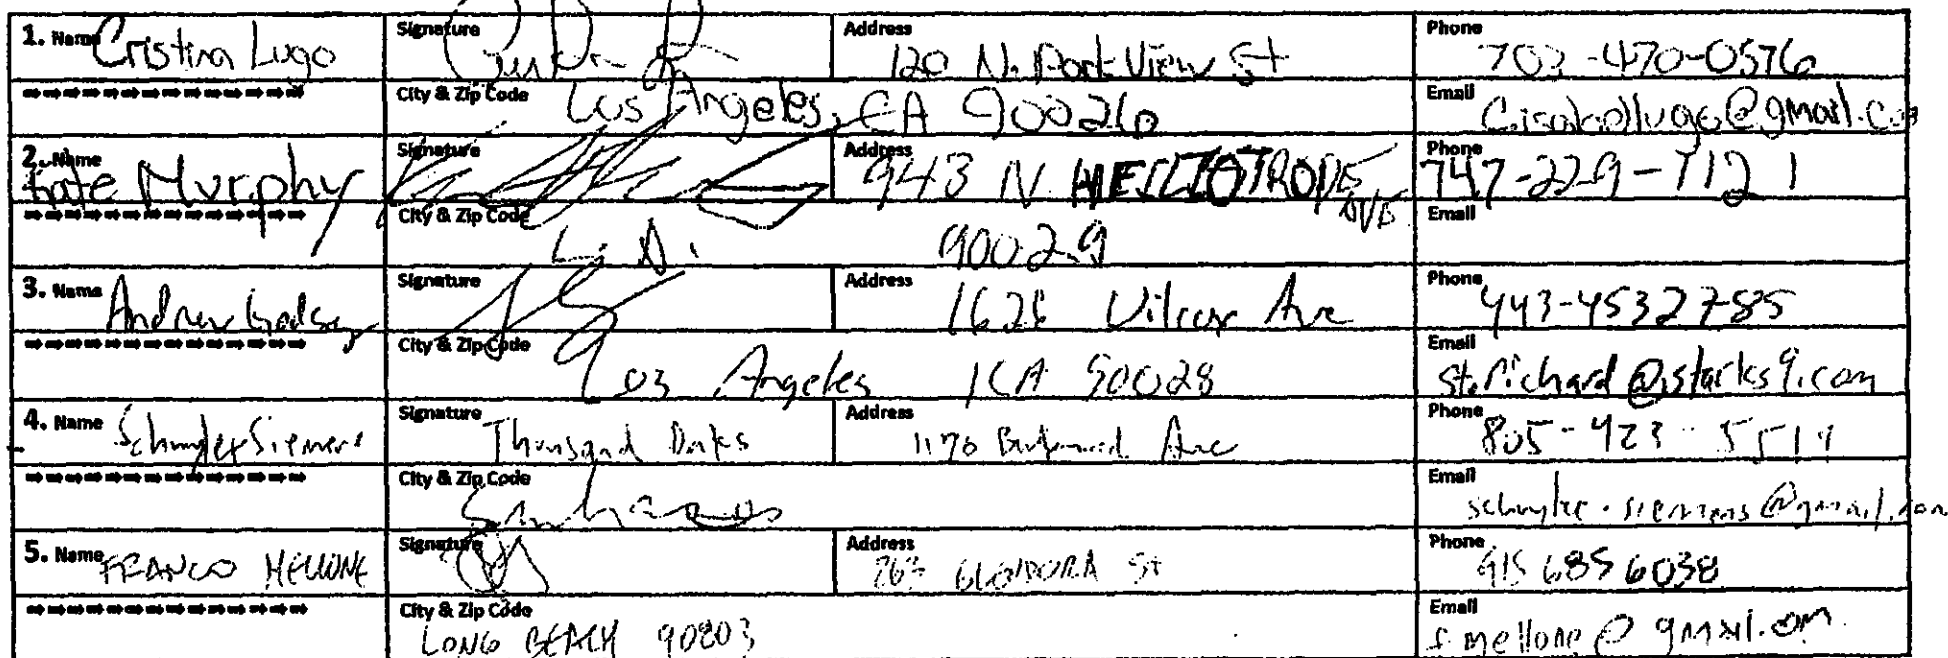 1. Name Cristina Lugo Signature Address 120 N. Port View St Phone 703-470-0576
City & Zip Code Los Angeles, CA 90026 Email @gmail.com
2. Name Kate Murphy Signature Address 943 N HELIOTROPE AVE Phone 747-229-7121
City & Zip Code L.A. 90029 Email
3. Name Andrew Signature Address 1628 Wilcox Ave Phone 443-4532785
City & Zip Code Los Angeles CA 90028 Email st.richard@starks9.com
4. Name Schuyler Siemens Signature Thousand Oaks Address 1170 Ave Phone 805-423-5519
City & Zip Code Email schuyler.siemens@gmail.com
5. Name FRANCO MELLONE Signature Address GLENDORA St Phone 915 685 6038
City & Zip Code LONG BEACH 90803 Email f.mellone@gmail.com